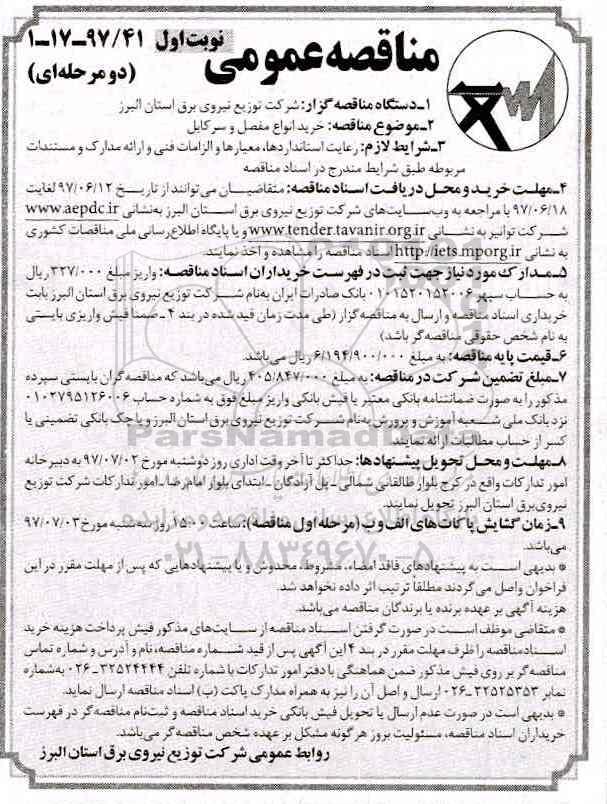 مناقصه عمومی
نوبت اول
۱-۱۷-۹۷/۴۱
(دو مرحله‌ای)
۱-دستگاه مناقصه گزار: شرکت توزیع نیروی برق استان البرز
۲-موضوع مناقصه: خرید انواع مفصل و سرکابل
۳-شرایط لازم: رعایت استانداردها، معیارها و الزامات فنی و ارائه مدارک و مستندات
مربوطه طبق شرایط مندرج در اسناد مناقصه
۴-مهلت خرید و محل دریافت اسناد مناقصه: متقاضیان می‌توانند از تاریخ ۹۷/۰۶/۱۲ لغایت
۹۷/۰۶/۱۸ با مراجعه به وب‌سایت‌های شرکت توزیع نیروی برق استان البرز به‌نشانی www.aepdc.ir
شرکت توانیر به نشانی www.tender.tavanir.org.ir و یا پایگاه اطلاع‌رسانی ملی مناقصات کشوری
به نشانی http://iets.mporg.ir اسناد مناقصه را مشاهده و اخذ نمایند.
۵-مدارک مورد نیاز جهت ثبت در فهرست خریداران اسناد مناقصه: واریز مبلغ ۳۲۷/۰۰۰ ریال
به حساب سپهر ۰۱۰۱۵۲۰۱۵۲۰۰۶ بانک صادرات ایران به‌نام شرکت توزیع نیروی برق استان البرز بابت
خریداری اسناد مناقصه و ارسال به مناقصه گزار (طی مدت زمان قید شده در بند ۴ - ضمناً فیش واریزی بایستی
به نام شخص حقوقی مناقصه‌گر باشد)
۶-قیمت پایه مناقصه: به مبلغ ۶/۱۹۴/۹۰۰/۰۰۰ ریال می‌باشد.
۷-مبلغ تضمین شرکت در مناقصه: به مبلغ ۴۰۵/۸۴۷/۰۰۰ ریال می‌باشد که مناقصه‌گران بایستی سپرده
مذکور را به صورت ضمانتنامه بانکی معتبر یا فیش بانکی واریز مبلغ فوق به شماره حساب ۰۱۰۲۷۹۵۱۲۶۰۰۶
نزد بانک ملی شعبه آموزش و پرورش به‌نام شرکت توزیع نیروی برق استان البرز و یا چک بانکی تضمینی یا
کسر از حساب مطالبات ارائه نمایند.
۸-مهلت و محل تحویل پیشنهادها: حداکثر تا آخر وقت اداری روز دوشنبه مورخ ۹۷/۰۷/۰۲ به دبیرخانه
امور تدارکات واقع در کرج بلوار طالقانی شمالی - پل آزادگان - ابتدای بلوار امام رضا - امور تدارکات شرکت توزیع
نیروی برق استان البرز تحویل نمایند.
۹-زمان گشایش پاکات‌های الف و ب (مرحله اول مناقصه): ساعت ۱۵:۰۰ روز سه‌شنبه مورخ ۹۷/۰۷/۰۳
می‌باشد.
* بدیهی است به پیشنهادهای فاقد امضاء، مشروط، مخدوش و یا پیشنهادهایی که پس از مهلت مقرر در این
فراخوان واصل می‌گردند مطلقاً ترتیب اثر داده نخواهد شد.
هزینه آگهی بر عهده برنده یا برندگان مناقصه می‌باشد.
* متقاضی موظف است در صورت گرفتن اسناد مناقصه از سایت‌های مذکور فیش پرداخت هزینه خرید
اسناد مناقصه را ظرف مهلت مقرر در بند ۴ این آگهی پس از قید شماره مناقصه، نام و آدرس و شماره تماس
مناقصه‌گر بر روی فیش مذکور ضمن هماهنگی با دفتر امور تدارکات با شماره تلفن ۳۲۵۲۴۴۴۴-۰۲۶ به‌شماره
نمابر ۳۲۵۲۵۳۵۳-۰۲۶ ارسال و اصل آن را نیز به همراه مدارک پاکت (ب) اسناد مناقصه ارسال نماید.
* بدیهی است در صورت عدم ارسال یا تحویل فیش بانکی خرید اسناد مناقصه و ثبت‌نام مناقصه‌گر در فهرست
خریداران اسناد مناقصه، مسئولیت بروز هر گونه مشکل بر عهده شخص مناقصه‌گر می‌باشد.
روابط عمومی شرکت توزیع نیروی برق استان البرز
ParsNamadData
۰۲۱-۸۸۳۴۹۶۷۰-۵